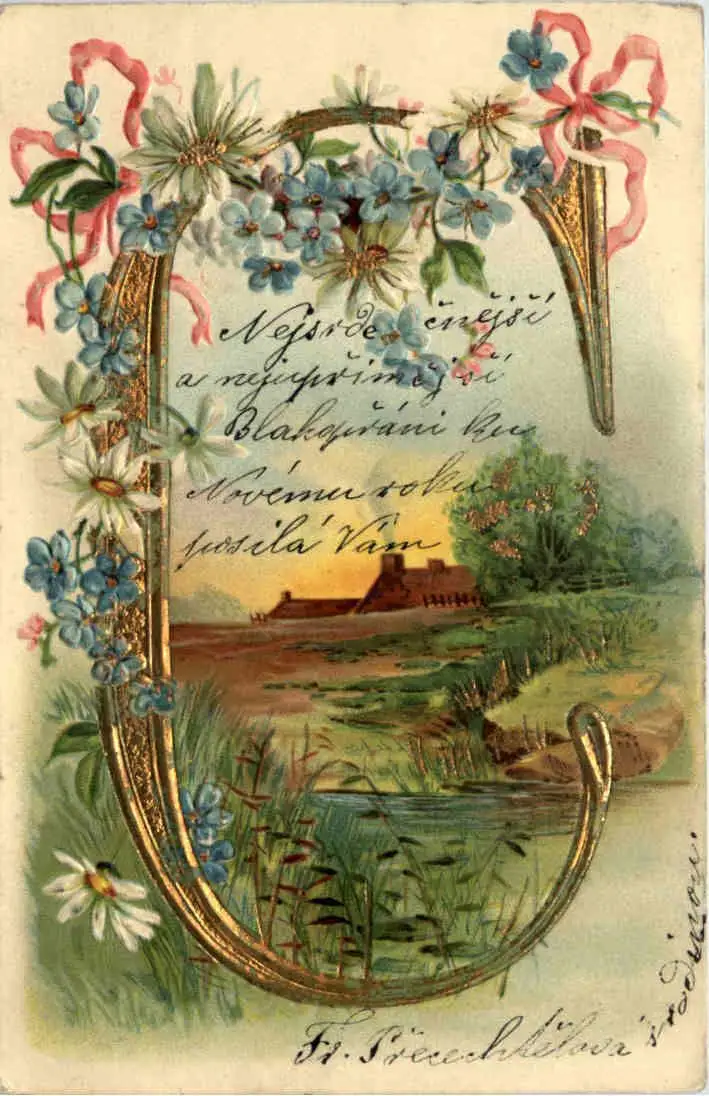 Nejsrdečnější
a nejupřimější
Blahopřáni ku
Novému roku
posilá Vám
Fr. Přecechtělová
s rodinou.